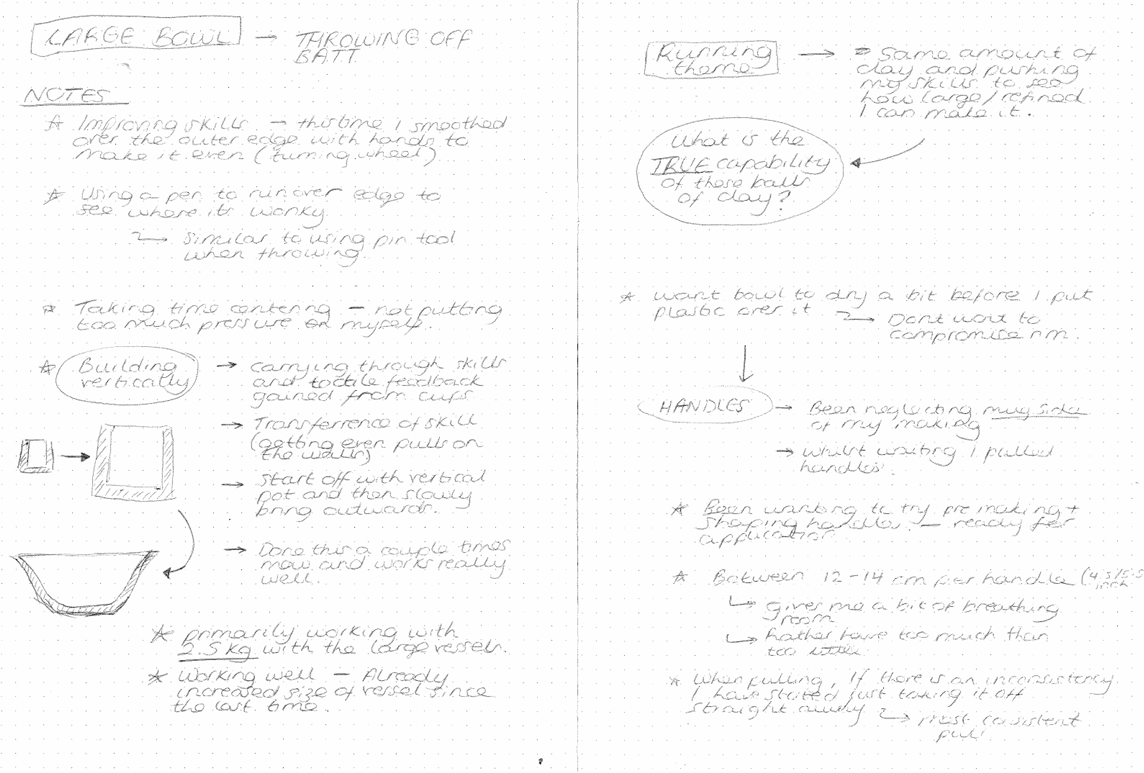 LARGE BOWL → THROWING OFF
BATT
NOTES
☆ Improving skills → this time I smoothed
over the outer edge with hands to
make it even (turning wheel)
☆ Using a pen to run over edge to
see where its wonky
↳ Similar to using pin tool
when throwing.
☆ Taking time centering – not putting
too much pressure on myself.
☆ Building
vertically
→ carrying through skills
and tactile feedback
gained from cups
→ Transferrence of skill
(getting even pulls on
the walls)
→ Start off with vertical
pot and then slowly
bring outwards.
→ Done this a couple times
now and works really
well.
☆ primarily working with
2.5kg with the large vessels.
☆ Working well – Already
increased size of vessel since
the last time.
Running
theme
→ Same amount of
clay and pushing
my skills to see
how large/refined
I can make it.
What is the
TRUE capability
of these balls
of clay?
☆ want bowl to dry a bit before I put
plastic over it ↳ Dont want to
compromise rim.
HANDLES → Been neglecting mug side
of my making
→ whilst waiting I pulled
handles.
☆ Been wanting to try pre making +
shaping handles – ready for
application
☆ Between 12-14 cm per handle (
inch
↳ gives me a bit of breathing
room
↳ Rather have too much than
too little
☆ When pulling, If there is an inconsistency
I have started just taking it off
straight away ↳ most consistent
pull